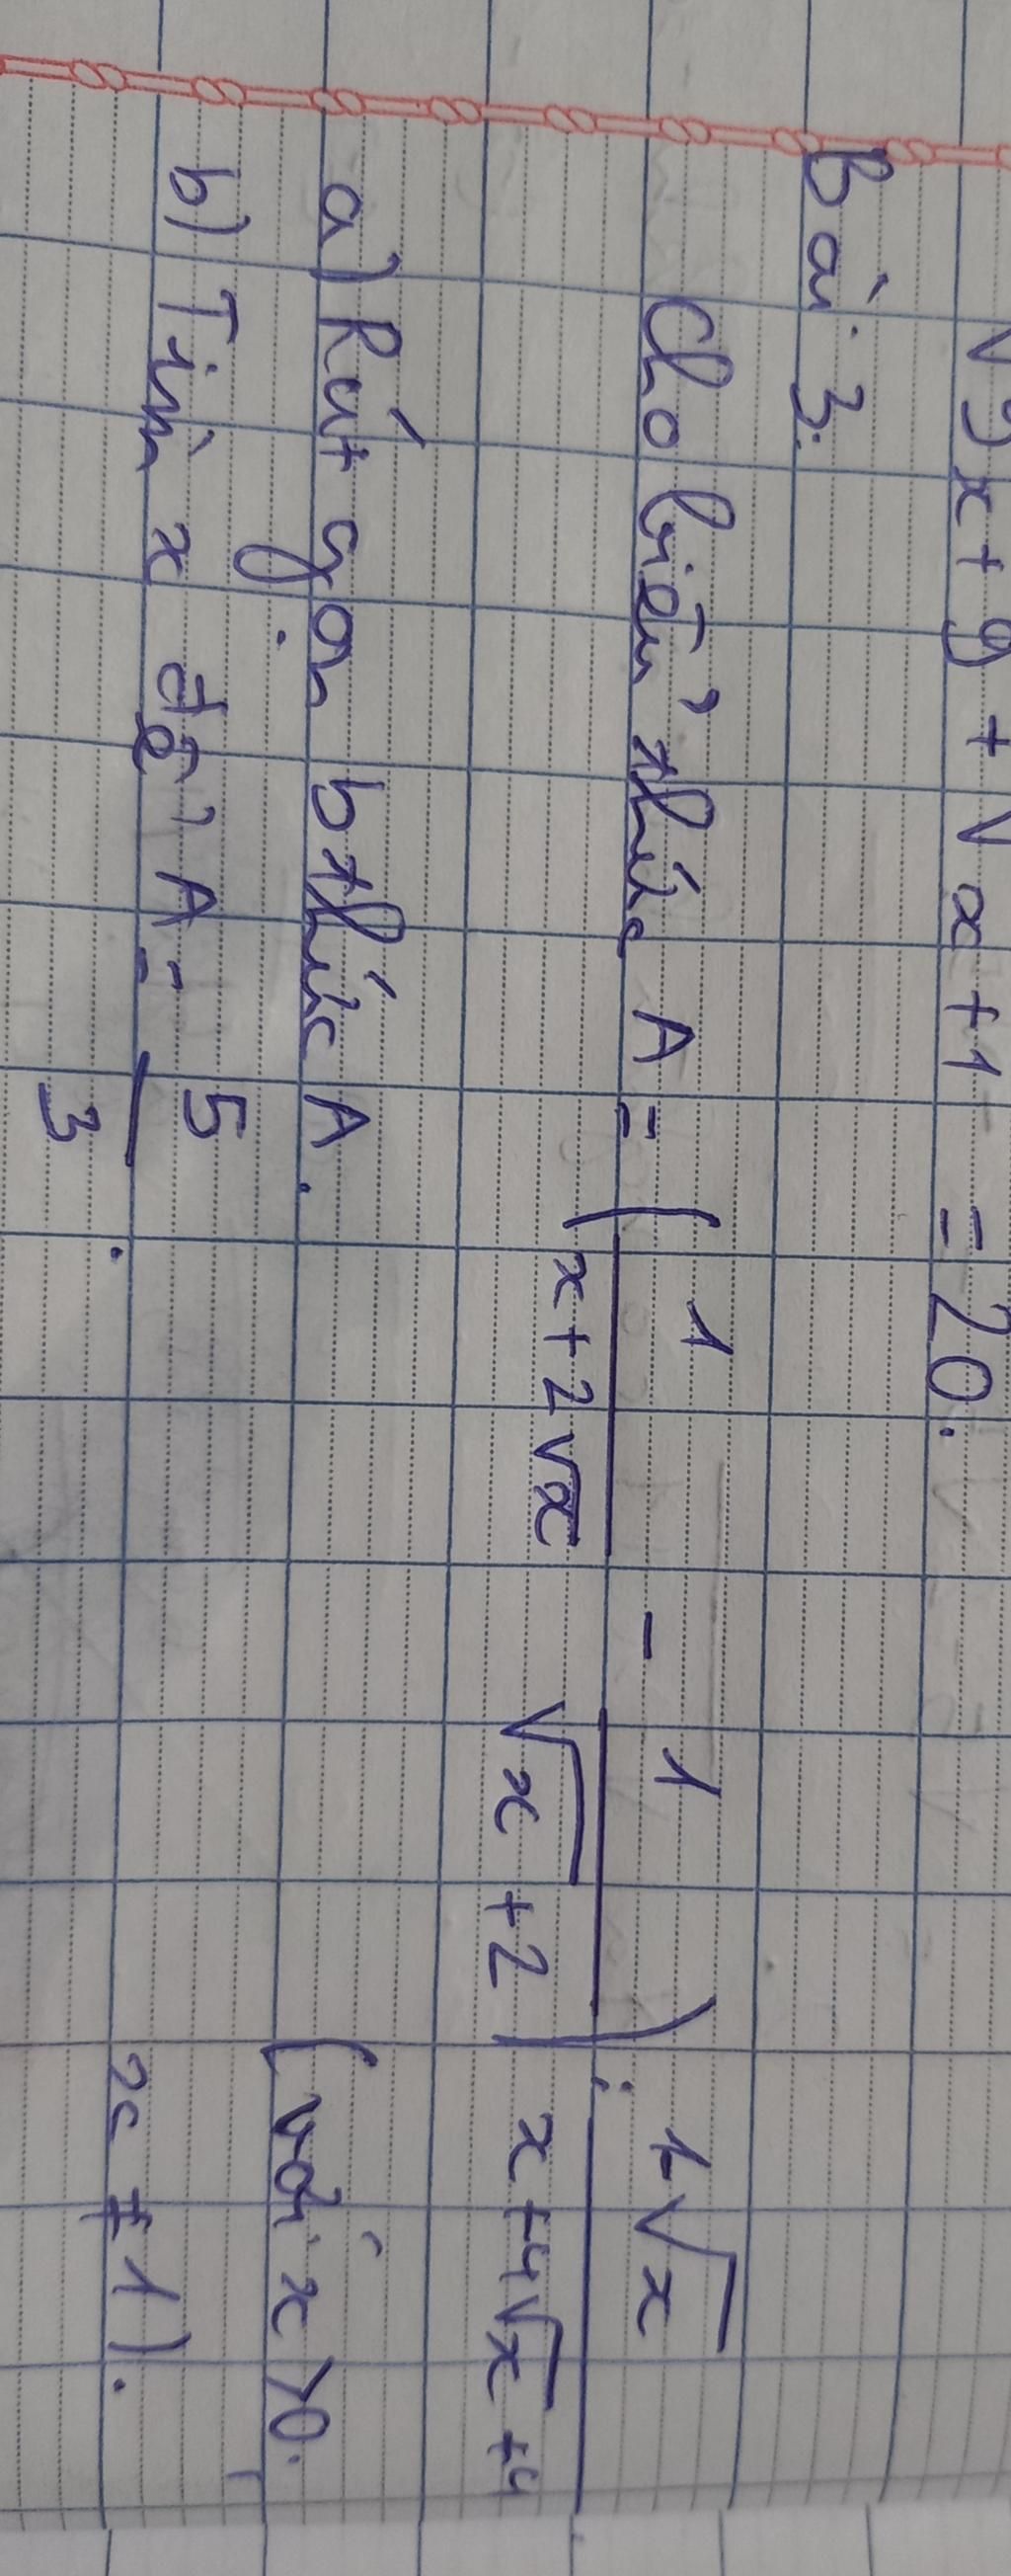 √9x+9 + √x+1 = 20.
Bài 3:
Cho biểu thức A = (1/(x+2√x) - 1/(√x+2)) : 1√x/(x+4√x+4)
(với x>0.
a) Rút gọn bthức A.
x≠1).
b) Tìm x để A = 5/3.